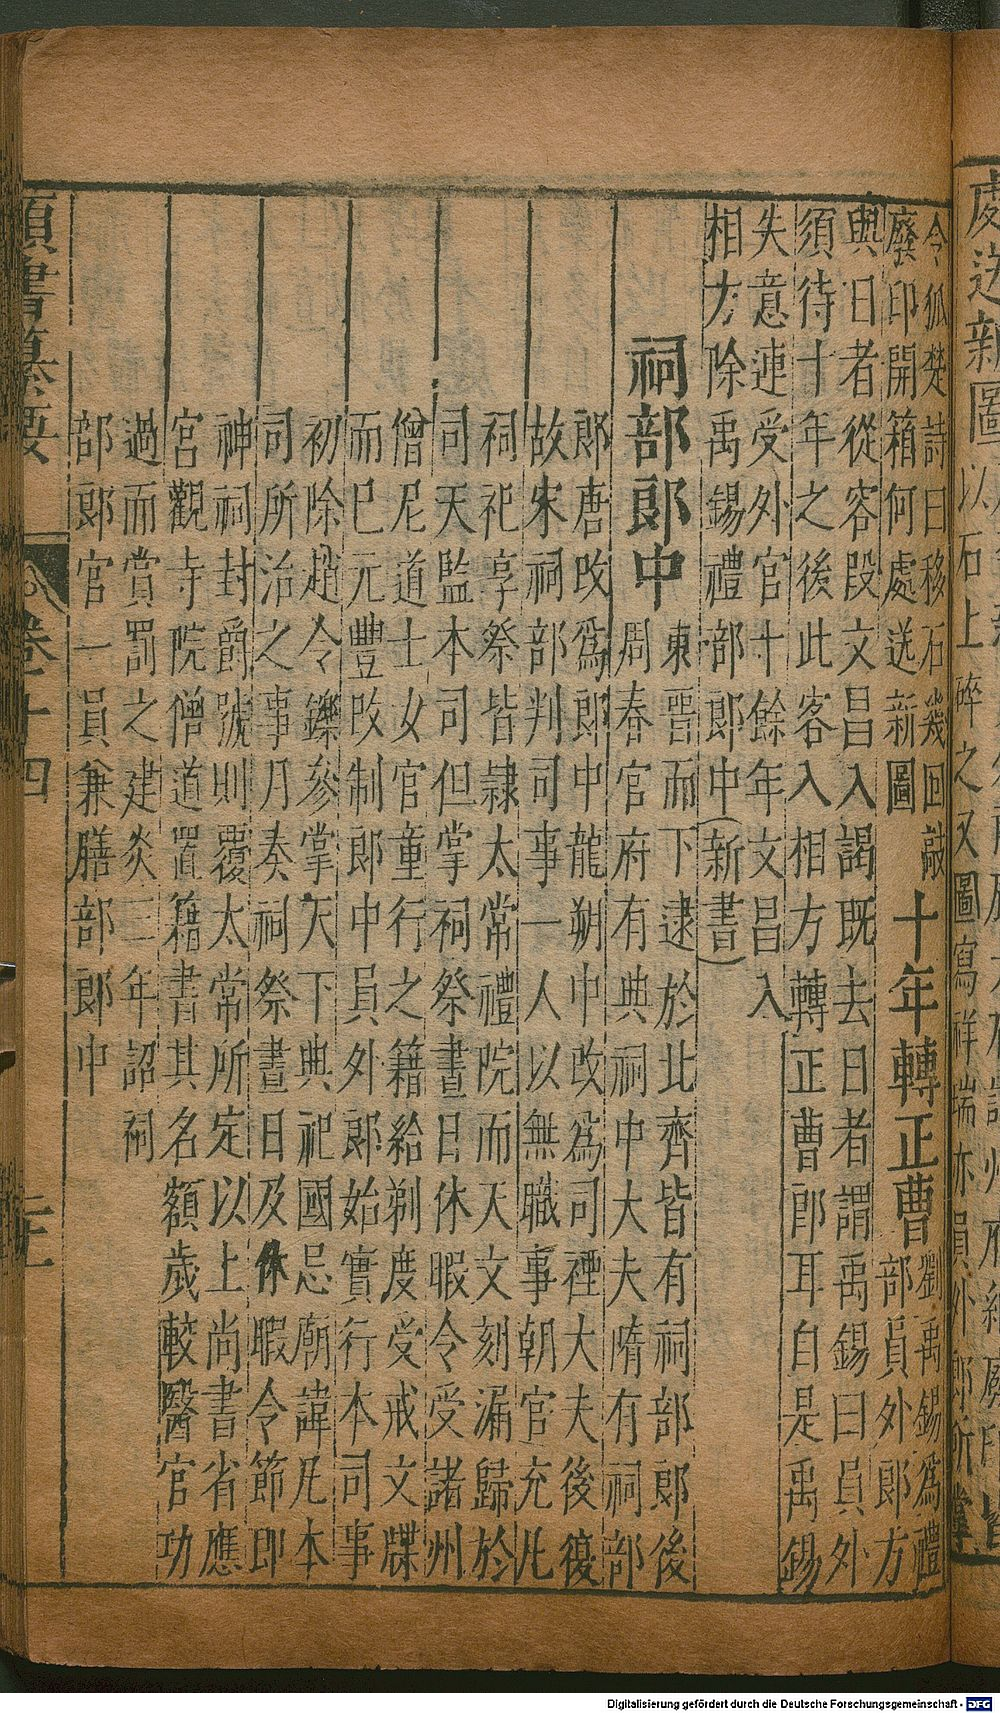 處送新圖
以石上碎之又圖寫祥瑞亦員外郎所掌
令狐楚詩曰移石幾回敲
廢印開箱何處送新圖
十年轉正曹
劉禹錫為禮
部員外郎方
與日者從容段文昌入謁既去日者謂禹錫曰員外
須待十年之後此客入相方轉正曹郎耳自是禹錫
失意連受外官十餘年文昌入
相方除禹錫禮部郎中(新書)
祠部郎中
東晋而下逮於北齊皆有祠部郎後
周春官府有典祠中大夫隋有祠部
郎唐改為郎中龍朔中改為司禋大夫後復
故宋祠部判司事一人以無職事朝官充凡
祠祀享祭皆隷太常禮院而天文刻漏歸於
司天監本司但掌祠祭晝日休暇令受諸州
僧尼道士女官童行之籍給剃度受戒文牒
而已元豐改制郎中員外郎始實行本司事
初除趙令鑠參掌天下典祀國忌廟諱凡本
司所治之事乃奏祠祭晝日及休暇令節即
神祠封爵號則覆太常所定以上尚書省應
宮觀寺院僧道置籍書其名額歲較醫官功
過而賞罰之建炎三年詔祠
部郎官一員兼膳部郎中
類書纂要 卷十四
Digitalisierung gefördert durch die Deutsche Forschungsgemeinschaft - DFG